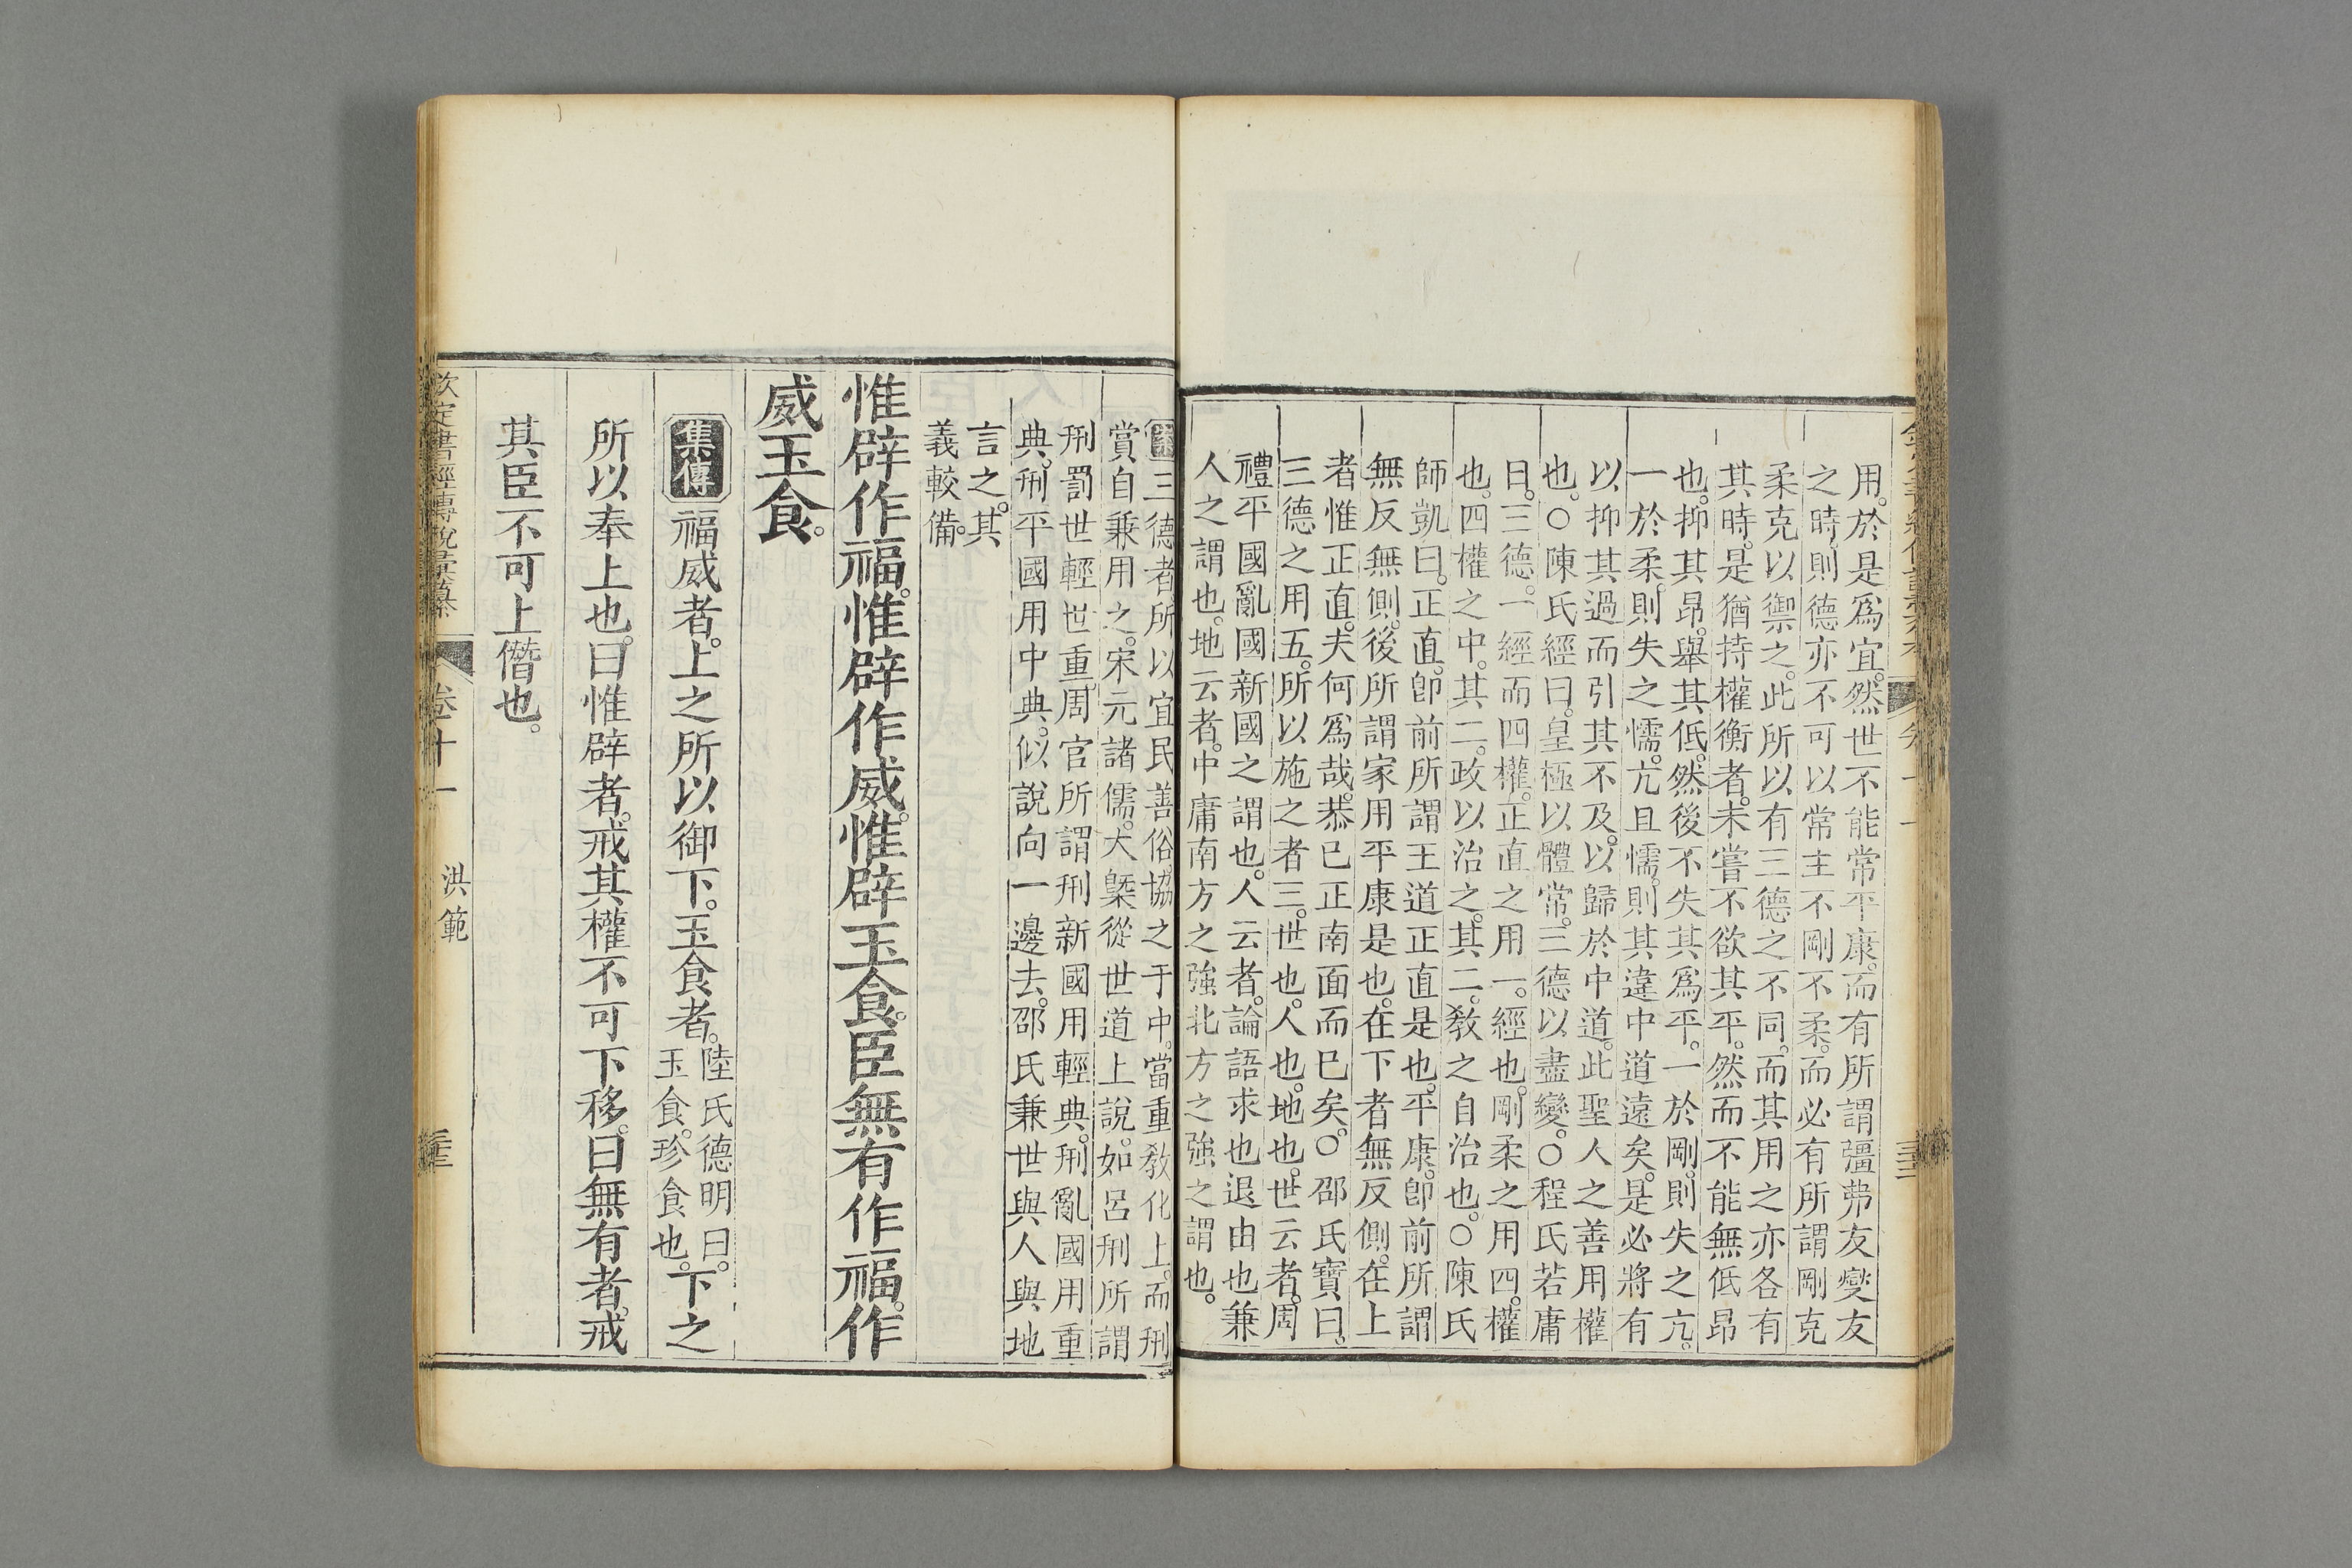 用。於是爲宜。然世不能常平康。而有所謂彊弗友燮友
之時。則德亦不可以常主不剛不柔。而必有所謂剛克
柔克以禦之。此所以有三德之不同。而其用之亦各有
其時。是猶持權衡者。未嘗不欲其平。然而不能無低昂
也。抑其昂。舉其低。然後不失其爲平。一於剛。則失之亢。
一於柔。則失之懦。亢且懦。則其違中道遠矣。是必將有
以抑其過而引其不及。以歸於中道。此聖人之善用權
也。○陳氏經曰。皇極以體常。三德以盡變。○程氏若庸
曰。三德。一經而四權。正直之用一。經也。剛柔之用四。權
也。四權之中。其二。政以治之。其二。敎之自治也。○陳氏
師凱曰。正直。卽前所謂王道正直是也。平康。卽前所謂
無反無側。後所謂家用平康是也。在下者無反側。在上
者惟正直。夫何爲哉。恭已正南面而已矣。○邵氏寶曰。
三德之用五。所以施之者三。世也。人也。地也。世云者。周
禮平國亂國新國之謂也。人云者。論語求也退由也兼
人之謂也。地云者。中庸南方之強北方之強之謂也。
案三德者所以宜民善俗。協之于中。當重敎化上。而刑
賞自兼用之。宋元諸儒。大槩從世道上說。如呂刑所謂
刑罰世輕世重。周官所謂刑新國用輕典。刑亂國用重
典。刑平國用中典。似說向一邊去。邵氏兼世與人與地
言之。其
義較備。
惟辟作福。惟辟作威。惟辟玉食。臣無有作福。作
威玉食。
集傳 福威者。上之所以御下。玉食者。陸氏德明曰。玉食。珍食也。下之
所以奉上也。曰惟辟者。戒其權不可下移。曰無有者。戒
其臣不可上僭也。
欽定書經傳說彙纂 卷十一 洪範